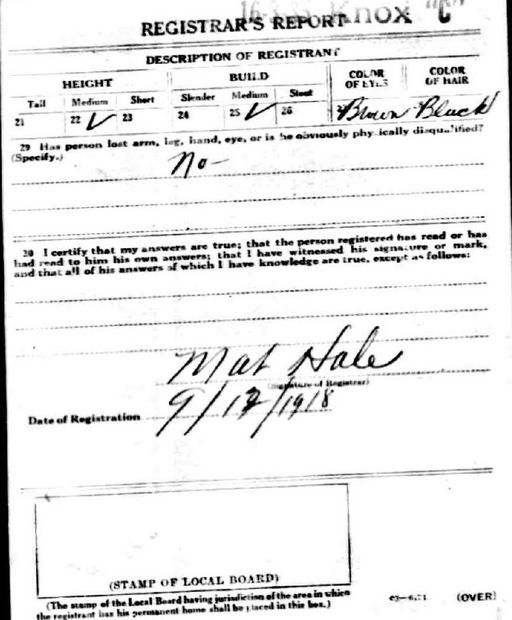 Knox "C"
REGISTRAR'S REPORT
DESCRIPTION OF REGISTRANT
HEIGHT BUILD COLOR OF EYES COLOR OF HAIR
Tall Medium Short Slender Medium Stout
21 22 ✓ 23 24 25 ✓ 26 Brown Black
29 Has person lost arm, leg, hand, eye, or is he obviously physically disqualified?
(Specify.)
No-
30 I certify that my answers are true; that the person registered has read or has
had read to him his own answers; that I have witnessed his signature or mark,
and that all of his answers of which I have knowledge are true, except as follows:
Mat Hale
(Signature of Registrar)
Date of Registration 9/12/1918
(STAMP OF LOCAL BOARD)
(The stamp of the Local Board having jurisdiction of the area in which
the registrant has his permanent home shall be placed in this box.)
(OVER)